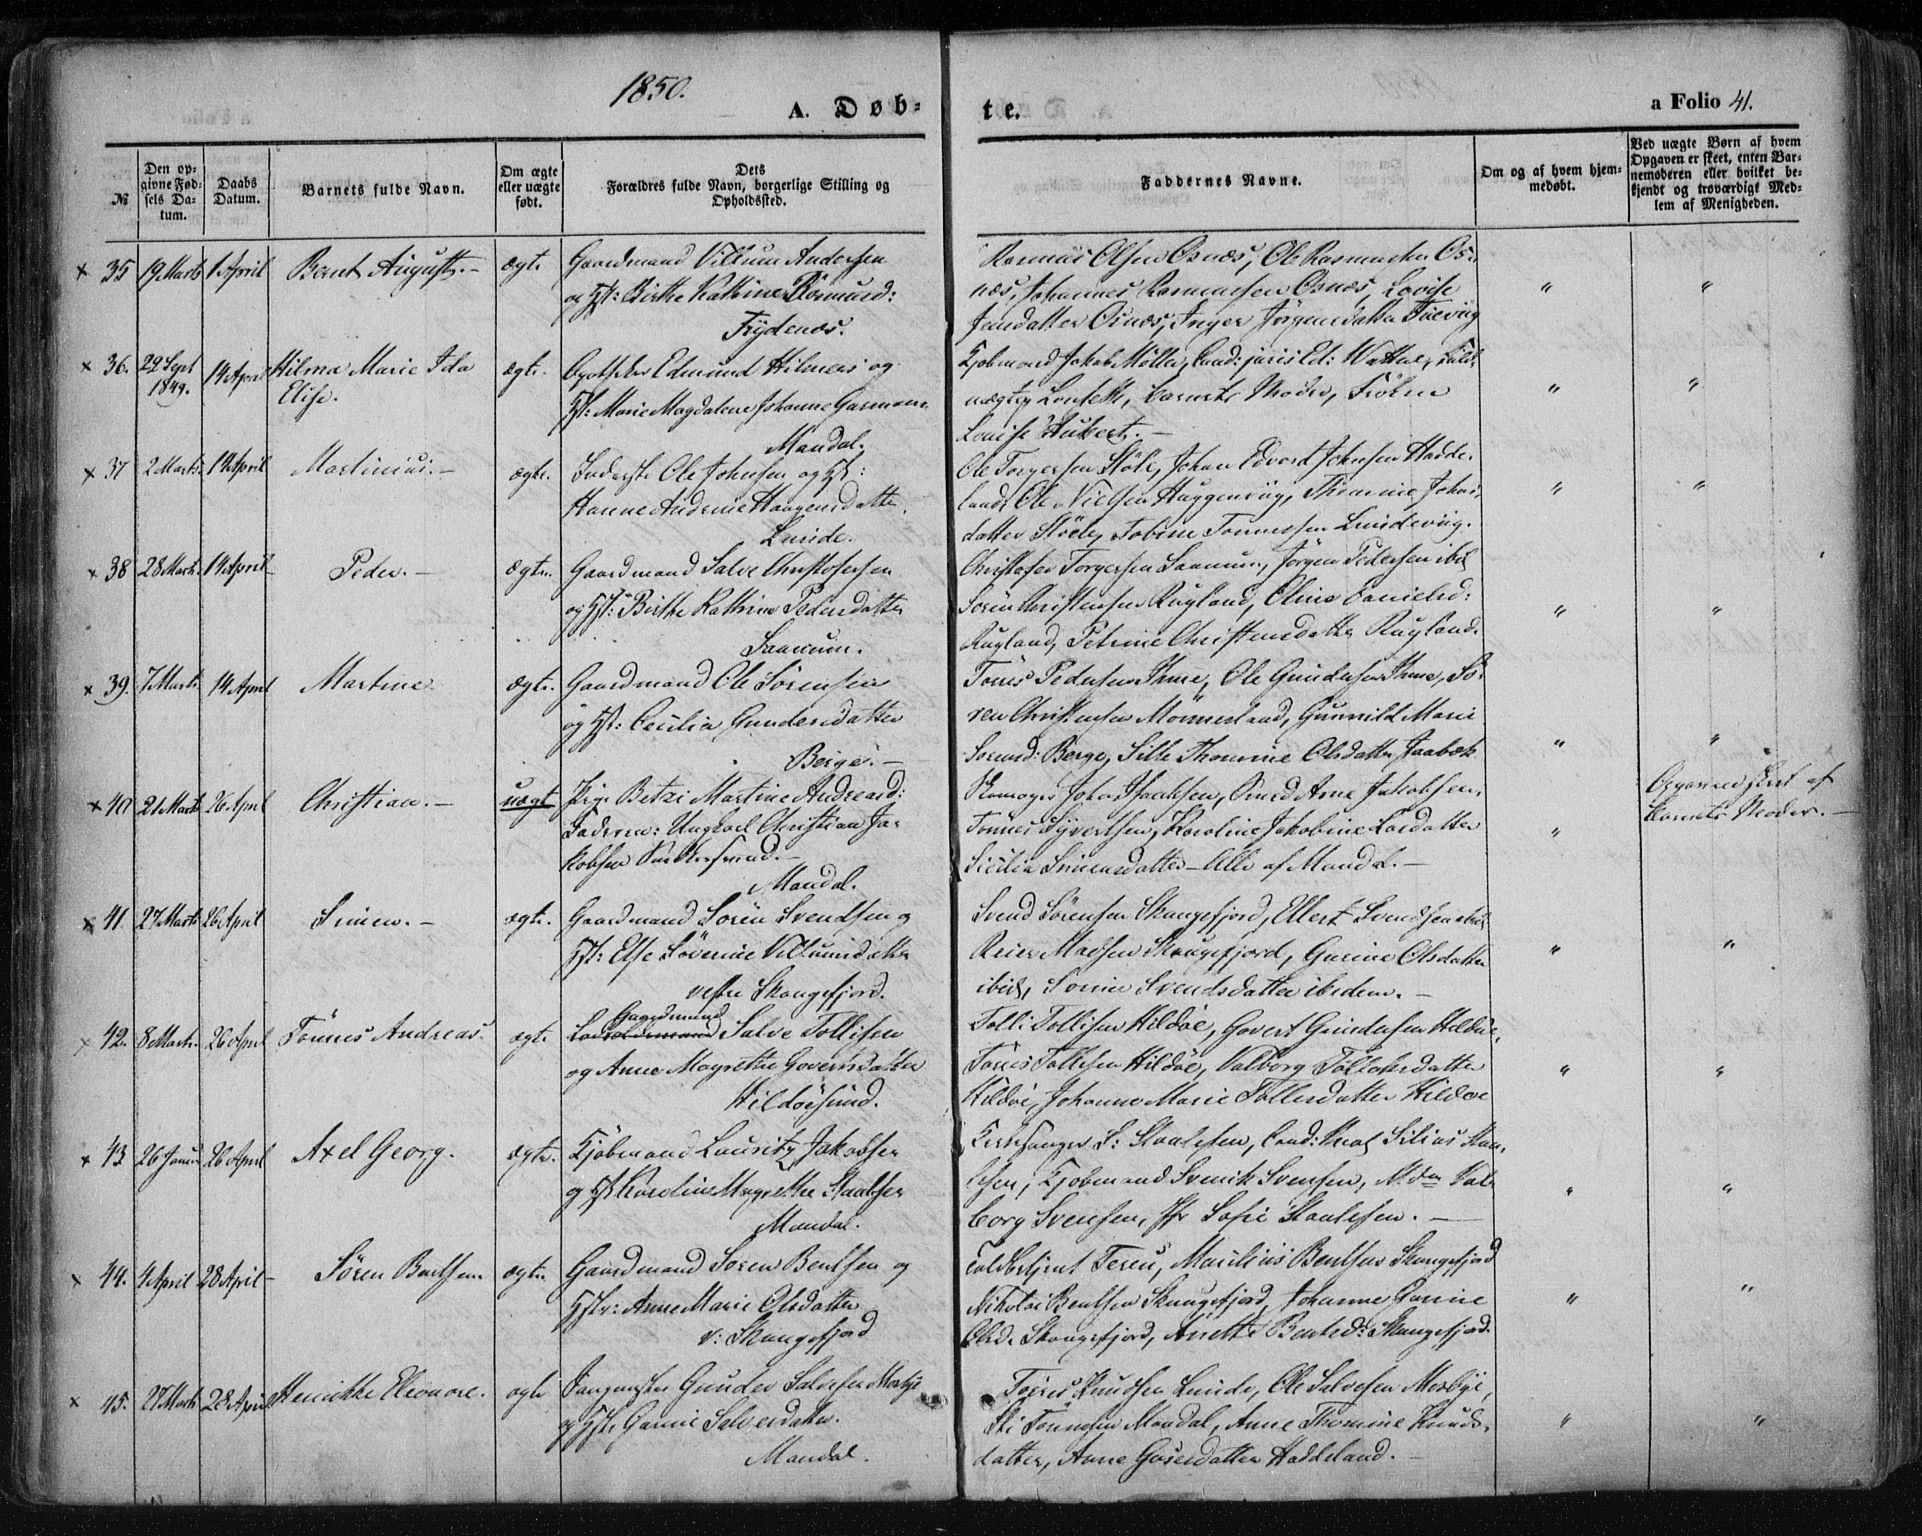 1850.
A. Døb-
te.
a Folio 41.
№
Den op-
givne Fød-
sels Da-
tum.
Daabs
Datum.
Barnets fulde Navn.
Om ægte
eller uægte
født.
Dets
Forældres fulde Navn, borgerlige Stilling og
Opholdssted.
Faddernes Navne.
Om og af hvem hjem-
medøbt.
Ved uægte Børn af hvem
Opgaven er skeet, enten Bar-
nemoderen eller hvilket be-
kjendt og troværdigt Med-
lem af Menigheden.
× 35 19 Marts 1 April Bernt August. - ægte Gaardmand Villum Andersen
og Hst: Birthe Kathrine Rasmusd:
Frydenæs.
Rasmus Olsen Osnæs, Ole Rasmussen Os-
næs, Johannes Rasmussen Osnæs, Lovise
Jensdatter Osnæs, Inger Jörgensdatter
" "
× 36. 29 Sept 1849. 14 April Hilma Marie Ida
Elise.
ægte. Apotheker Edmund Hilmers og
Hst: Marie Magdalene Johanne Garmann
Mandal.
Kjöbmand Jakob Møller, Cand: juris Ed:
Barnets Moder, Fröken
Louise Hubert. -
" "
× 37 2 Marts. 14 April Martinius. - ægte. Inderste Ole Johnsen og Hst:
Hanne Andrine Haagensdatter.
Linde.
Ole Torgersen Støle, Johan Edvard Johnsen Hadde-
land, Ole Nielsen Huggenviig, Thomine Johns-
datter Støle, Tobine Tönnessen Lindeviig.
" "
× 38 28 Marts 14 April Peder. - ægte. Gaardmand Salve Christofersen
og Hst: Birthe Kathrine Pedersdatter
Saanum.
Christofer Torgersen Saanum, Jörgen Pedersen ibid
Sören Christensen Rugland, Oline Danielsd:
Rugland, Petrine Christensdatter Rugland.
" "
× 39. 7 Marts 14 April Martine ægte. Gaardmand Ole Sörensen
og Hst: Cecilia Gundersdatter
Berge. -
Törres Pedersen Ihme, Ole Gundersen Ihme, Sö-
ren Christensen Mönnesland, Gunnild Marie
Sörensd: Berge, Sille Thomine Olsdatter Jaabæk
" "
× 40 21 Marts 26 April Christian. - uægt Pige Betzi Martine Andreasd:
Faderen: Ungkarl Christian Ja-
kobsen
Mandal.
Skomager Johan Isaksen, Smed Arne Jakobsen,
Tönnes Syvertsen, Karoline Jakobine Larsdatter
Sicilia Simensdatter - Alle af Mandal. -
"
Opgaven skeet af
Barnets Moder. -
× 41. 27 Marts 26 April Simen. - ægte. Gaardmand Sören Svendsen og
Hst: Else Söverine Villumsdatter
vestre Skougefjord.
Svend Sörensen Skaugefjord, Ellert Svendsen ibid
Reier Madsen Skougefjord, Gurine Olsdatter
ibid, Sörine Svendsdatter ibidem. -
" "
× 42. 8 Marts. 26 April Tönnes Andreas. ægte. Gaardmand
Salve Tollisen
og Anne Magrethe Govertsdatter
Hildöesund.
Tolli Tollisen Hildöe, Govert Gundersen Hildöe,
Törres Tollisen Hildöe, Valborg Tollaksdatter
Hildöe, Johanne Marie Tollisdatter Hildöe
" "
× 43 26 Januar 26 April Axel Georg. ægte. Kjöbmand Lauritz Jakobsen
og Hst Karoline Magrethe Staalesen
Mandal.
Kirkesanger S: Staalesen, Cand: theol Silius Staa-
lesen, Kjöbmand Svenik Svensen, Mdm Val-
borg Svensen, Jfr Sofie Staalesen. -
" "
× 44. 4 April 28 April - Sören Bentsen ægte. Gaardmand Sören Bentsen og
Hstr: Anne Marie Olsdatter
v: Skaugefjord
Toldbetjent Tereu, Marilius Bentsen Skougefjord
Nikolai Bentsen Skaugefjord, Johanne Gurine
Olsd. Skougefjord, Anette Bentsd: Skaugefjord.
" "
× 45. 27 Marts 28 April Henrikke Eleonore. ægte Gunder Salvesen Mosbye
og Hst: Gunie Salvesdatter.
Mandal.
Törres Knudsen Linde, Ole Salvesen Mosbye,
Tönnesen Mandal, Anne Thomine Knuds-
datter, Anne Gosesdatter Haddeland. -
" "